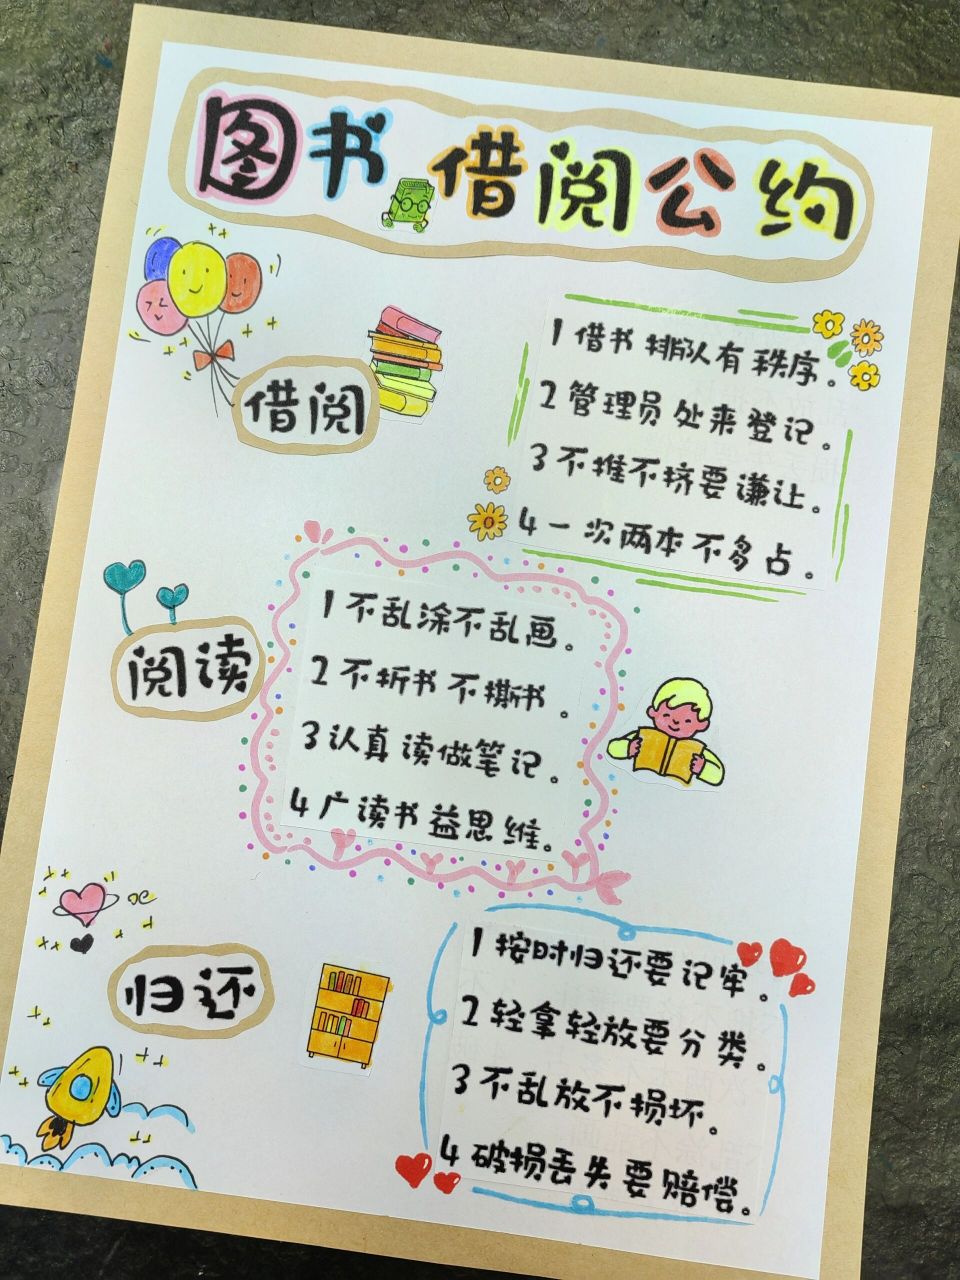 图书借阅公约
借阅
1 借书排队有秩序。
2 管理员处来登记。
3 不推不挤要谦让。
4 一次两本不多占。
阅读
1 不乱涂不乱画。
2 不折书不撕书。
3 认真读做笔记。
4 广读书益思维。
归还
1 按时归还要记牢。
2 轻拿轻放要分类。
3 不乱放不损坏。
4 破损丢失要赔偿。